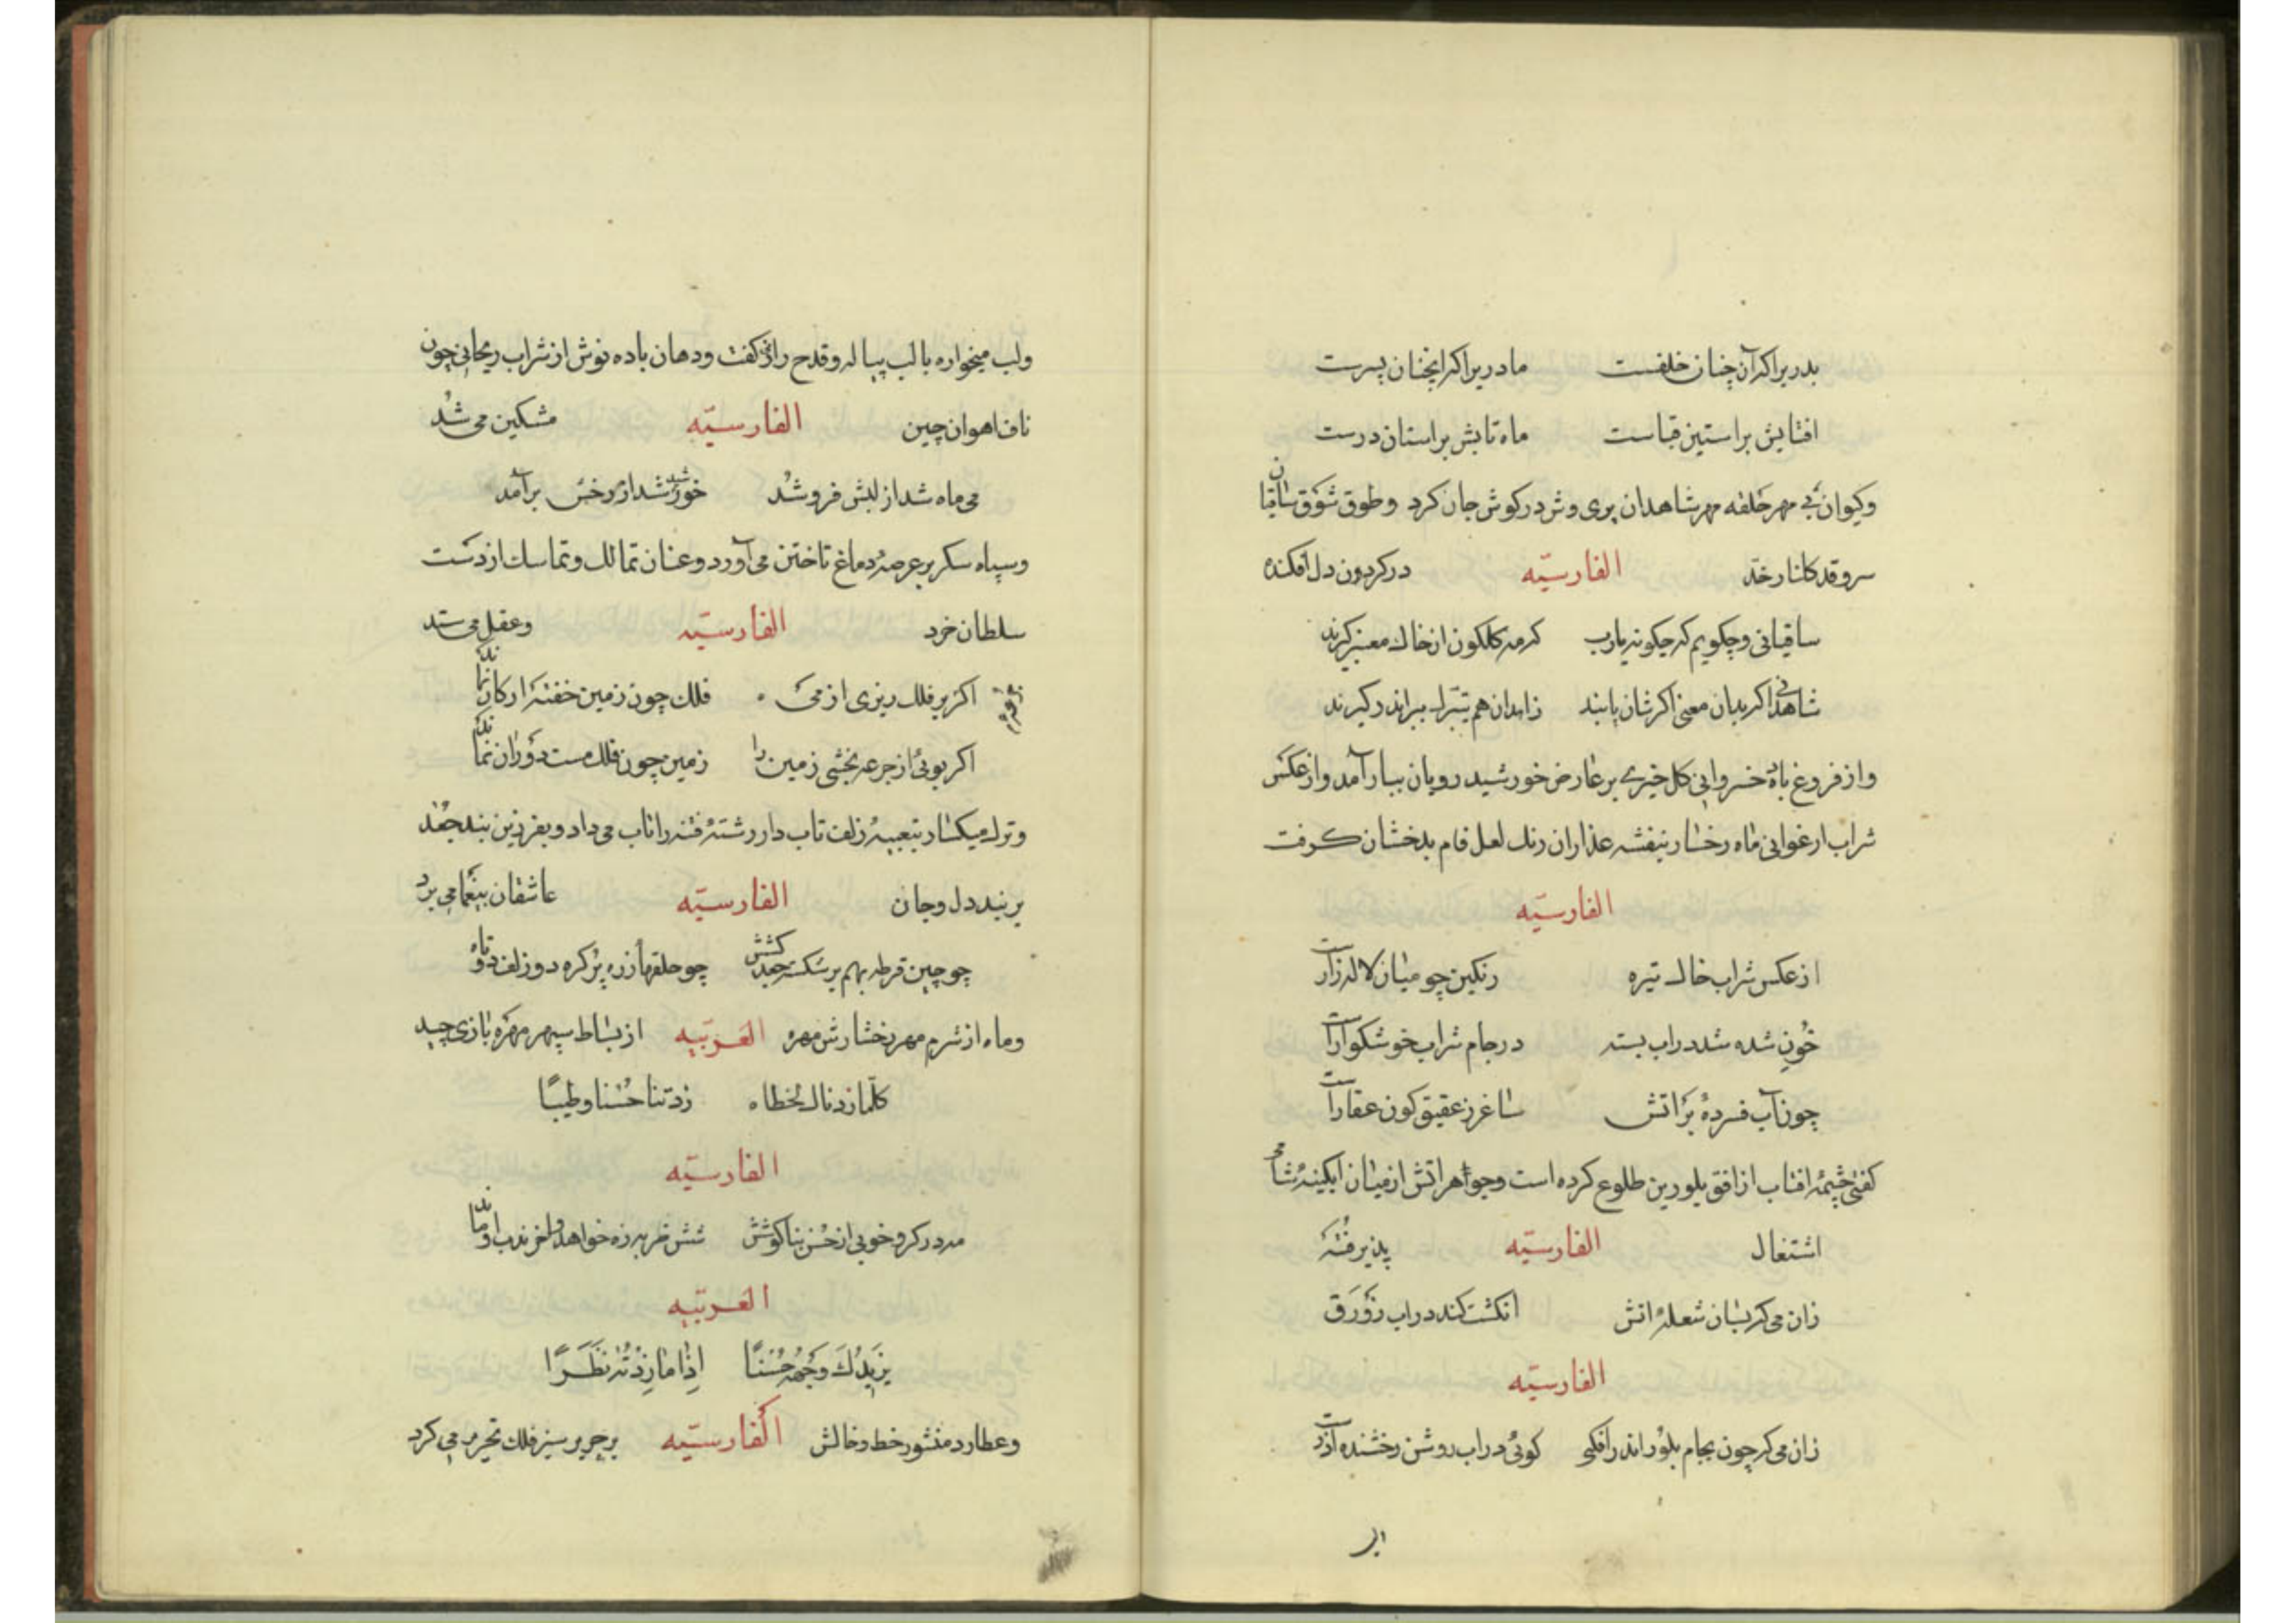 بدریرا کر آن چنان خلفست مادریرا کر اینچنان پسرست
افتابش بر استین قباست ماه تابش بر استان درست
وکیوان بی مهر حلقه مهر شاهدان پری وش در کوش جان کرد وطوق شوق ساقیان
سرو قد کلنار خد الفارسیّه در کردن دل افکنده
ساقیانی وچکویم که چکونه یارب کز مه کلکون از خاک معنبر کیرند
شاهدانی اگر بدان معنی اکرشان یابند زاهدان هم بتبرک ببر اندر کیرند
واز فروغ باده خسروانی کل خیری بر عارض خورشید رویان ببار آمد واز عکس
شراب ارغوانی ماه رخسار بنفشه عذاران رنک لعل فام بدخشان کرفت
الفارسیّه
از عکس شراب خاک تیره رنکین چو میان لاله زارست
خون شده شد در اب بسته در جام شراب خوشکوارست
چون آب فسرده بر اتش ساغر ز عقیق کون عقارست
کفتی چشمه افتاب از افق بلورین طلوع کرده است وجواهر اتش از میان ابکینه شامی
اشتعال الفارسیّه پذیرفته
زان می که بسان شعله اتش انکشت کند در اب زورق
الفارسیّه
زان می که چون بجام بلور اندر افکنی کوئی در اب روشن رخشنده آذرست
ولب میخواره با لب پیاله وقدح راز کفت ودهان باده نوش از شراب ریحانی چون
ناف اهوان چین الفارسیّه مشکین می شد
می ماه شد از لبش فرو شد خورشید شد از رخش برآمد
وسپاه سکر بر عرصه دماغ تاختن می آورد وعنان تمالک وتماسک از دست
سلطان خرد الفارسیّه وعقل می ستد
اکر بر فلک ریزی از می فلک چون زمین خفته ارکان نماند
اکر بوئی از جرعه بخشی زمین را زمین چون فلک مست دوران نماند
وترک میکسار بتعبیه زلف تاب دار رشته فتنه را تاب می داد وبفرزین بند جعد
بر بند دل وجان الفارسیّه عاشقان بیغما می برد
چو چین قرطه بهم بر شکست جعد کشش چو حلقهاء زره پر کره دو زلف دوتاه
وماه از شرم مهر رخسارش مهره العربیّه از بساط سپهر مهره بازی چید
کلما زدناک لحظا زدتنا حسنا وطیبا
الفارسیّه
شش ضربه زه خواهد
العربیّه
یَزیدُکَ وَجهُهُ حُسنًا اِذا ما زِدتَهُ نَظَرًا
وعطارد منشور خط وخالش الفارسیّه بر حریر سبز فلک تحریر می کرد